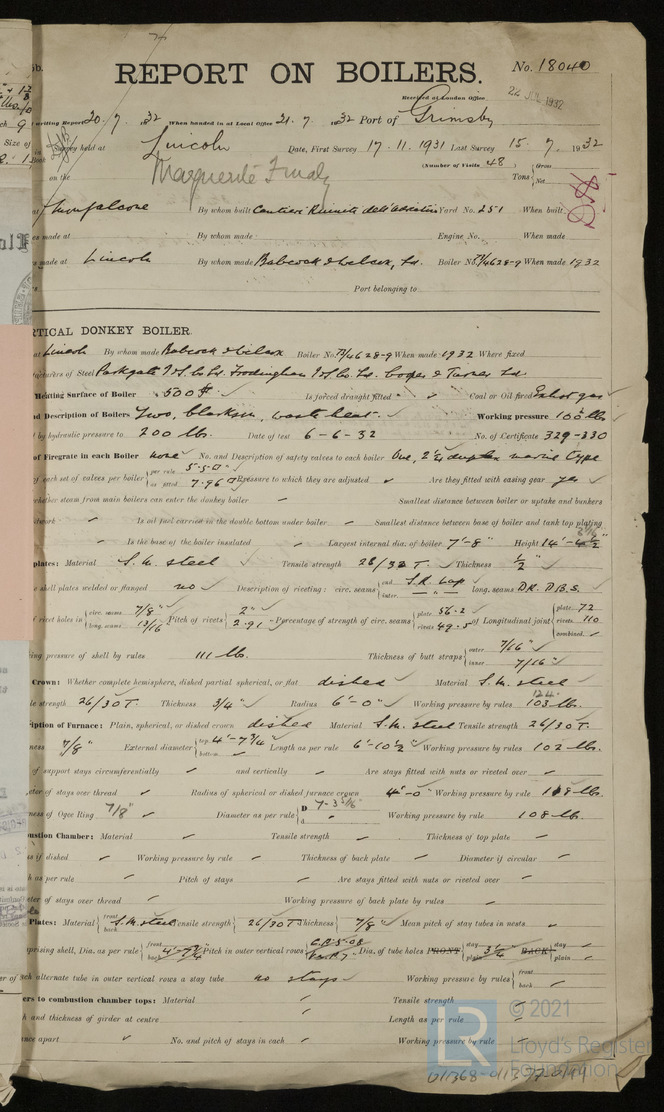 REPORT ON BOILERS.
No. 18040
Received at London Office
writing Report 20. 7. 32 When handed in at Local Office 21. 7. 1932 Port of Grimsby
Survey held at Lincoln Date, First Survey 17. 11. 1931 Last Survey 15. 7. 1932
on the Marguerite Finaly (Number of Visits 48) Tons Gross Net
at Monfalcone By whom built Cantieri Riuniti dell'Adriatico Yard No. 251 When built
made at By whom made Engine No. When made
made at Lincoln By whom made Babcock & Wilcox, Ld. Boiler No. 71/4628-9 When made 1932
Port belonging to
RTICAL DONKEY BOILER.
at Lincoln By whom made Babcock & Wilcox Boiler No. 71/4628-9 When made 1932 Where fixed
of Steel Parkgate I & S. Co. Ld. Frodingham I & S. Co. Ld. Cooper & Turner Ld
Heating Surface of Boiler 500 ft Is forced draught fitted Coal or Oil fired Exhst gas
nd Description of Boilers Two, Clarkson, waste heat. Working pressure 100 lbs
by hydraulic pressure to 200 lbs. Date of test 6-6-32 No. of Certificate 329-330
of Firegrate in each Boiler none No. and Description of safety valves to each boiler One, 2½ duplex marine type
of each set of valves per boiler per rule 5.50" as fitted 7.96 Pressure to which they are adjusted Are they fitted with easing gear yes
whether steam from main boilers can enter the donkey boiler Smallest distance between boiler or uptake and bunkers
Is oil fuel carried in the double bottom under boiler Smallest distance between base of boiler and tank top plating
Is the base of the boiler insulated Largest internal dia. of boiler 7'-8" Height 14'-
plates: Material S.M. steel Tensile strength 28/32 T. Thickness ½"
shell plates welded or flanged no Description of riveting: circ. seams end S.R. Lap inter. long. seams D.R. D.B.S.
rivet holes in circ. seams 7/8" long. seams 13/16 Pitch of rivets 2" 2.91 Percentage of strength of circ. seams plate 56.2 rivets 49.5 of Longitudinal joint plate 72 rivets 110 combined
ing pressure of shell by rules 111 lb. Thickness of butt straps outer 7/16" inner 7/16"
Crown: Whether complete hemisphere, dished partial spherical, or flat dished Material S.M. steel
le strength 26/30 T. Thickness 3/4" Radius 6'-0" Working pressure by rules 103 lb.
iption of Furnace: Plain, spherical, or dished crown dished Material S.M. steel Tensile strength 26/30 T.
ness 7/8" External diameter top 4'-7¾" bottom Length as per rule 6'-10½" Working pressure by rules 102 lb.
of support stays circumferentially and vertically Are stays fitted with nuts or riveted over
eter of stays over thread Radius of spherical or dished furnace crown 4'-0" Working pressure by rule 108 lb.
ness of Ogee Ring 7/8" Diameter as per rule D 7-3 d Working pressure by rule 108 lb.
ustion Chamber: Material Tensile strength Thickness of top plate
s if dished Working pressure by rule Thickness of back plate Diameter if circular
h as per rule Pitch of stays Are stays fitted with nuts or riveted over
eter of stays over thread Working pressure of back plate by rules
Plates: Material front back S.M. steel Tensile strength 26/30 T Thickness 7/8" Mean pitch of stay tubes in nests
prising shell, Dia. as per rule front back Pitch in outer vertical rows Dia. of tube holes FRONT stay plain 3¼ BACK stay plain
ch alternate tube in outer vertical rows a stay tube no stays Working pressure by rules front back
ers to combustion chamber tops: Material Tensile strength
h and thickness of girder at centre Length as per rule
nce apart No. and pitch of stays in each Working pressure by rules
© 2021
Lloyd's Register
Foundation
011368-011377-0149